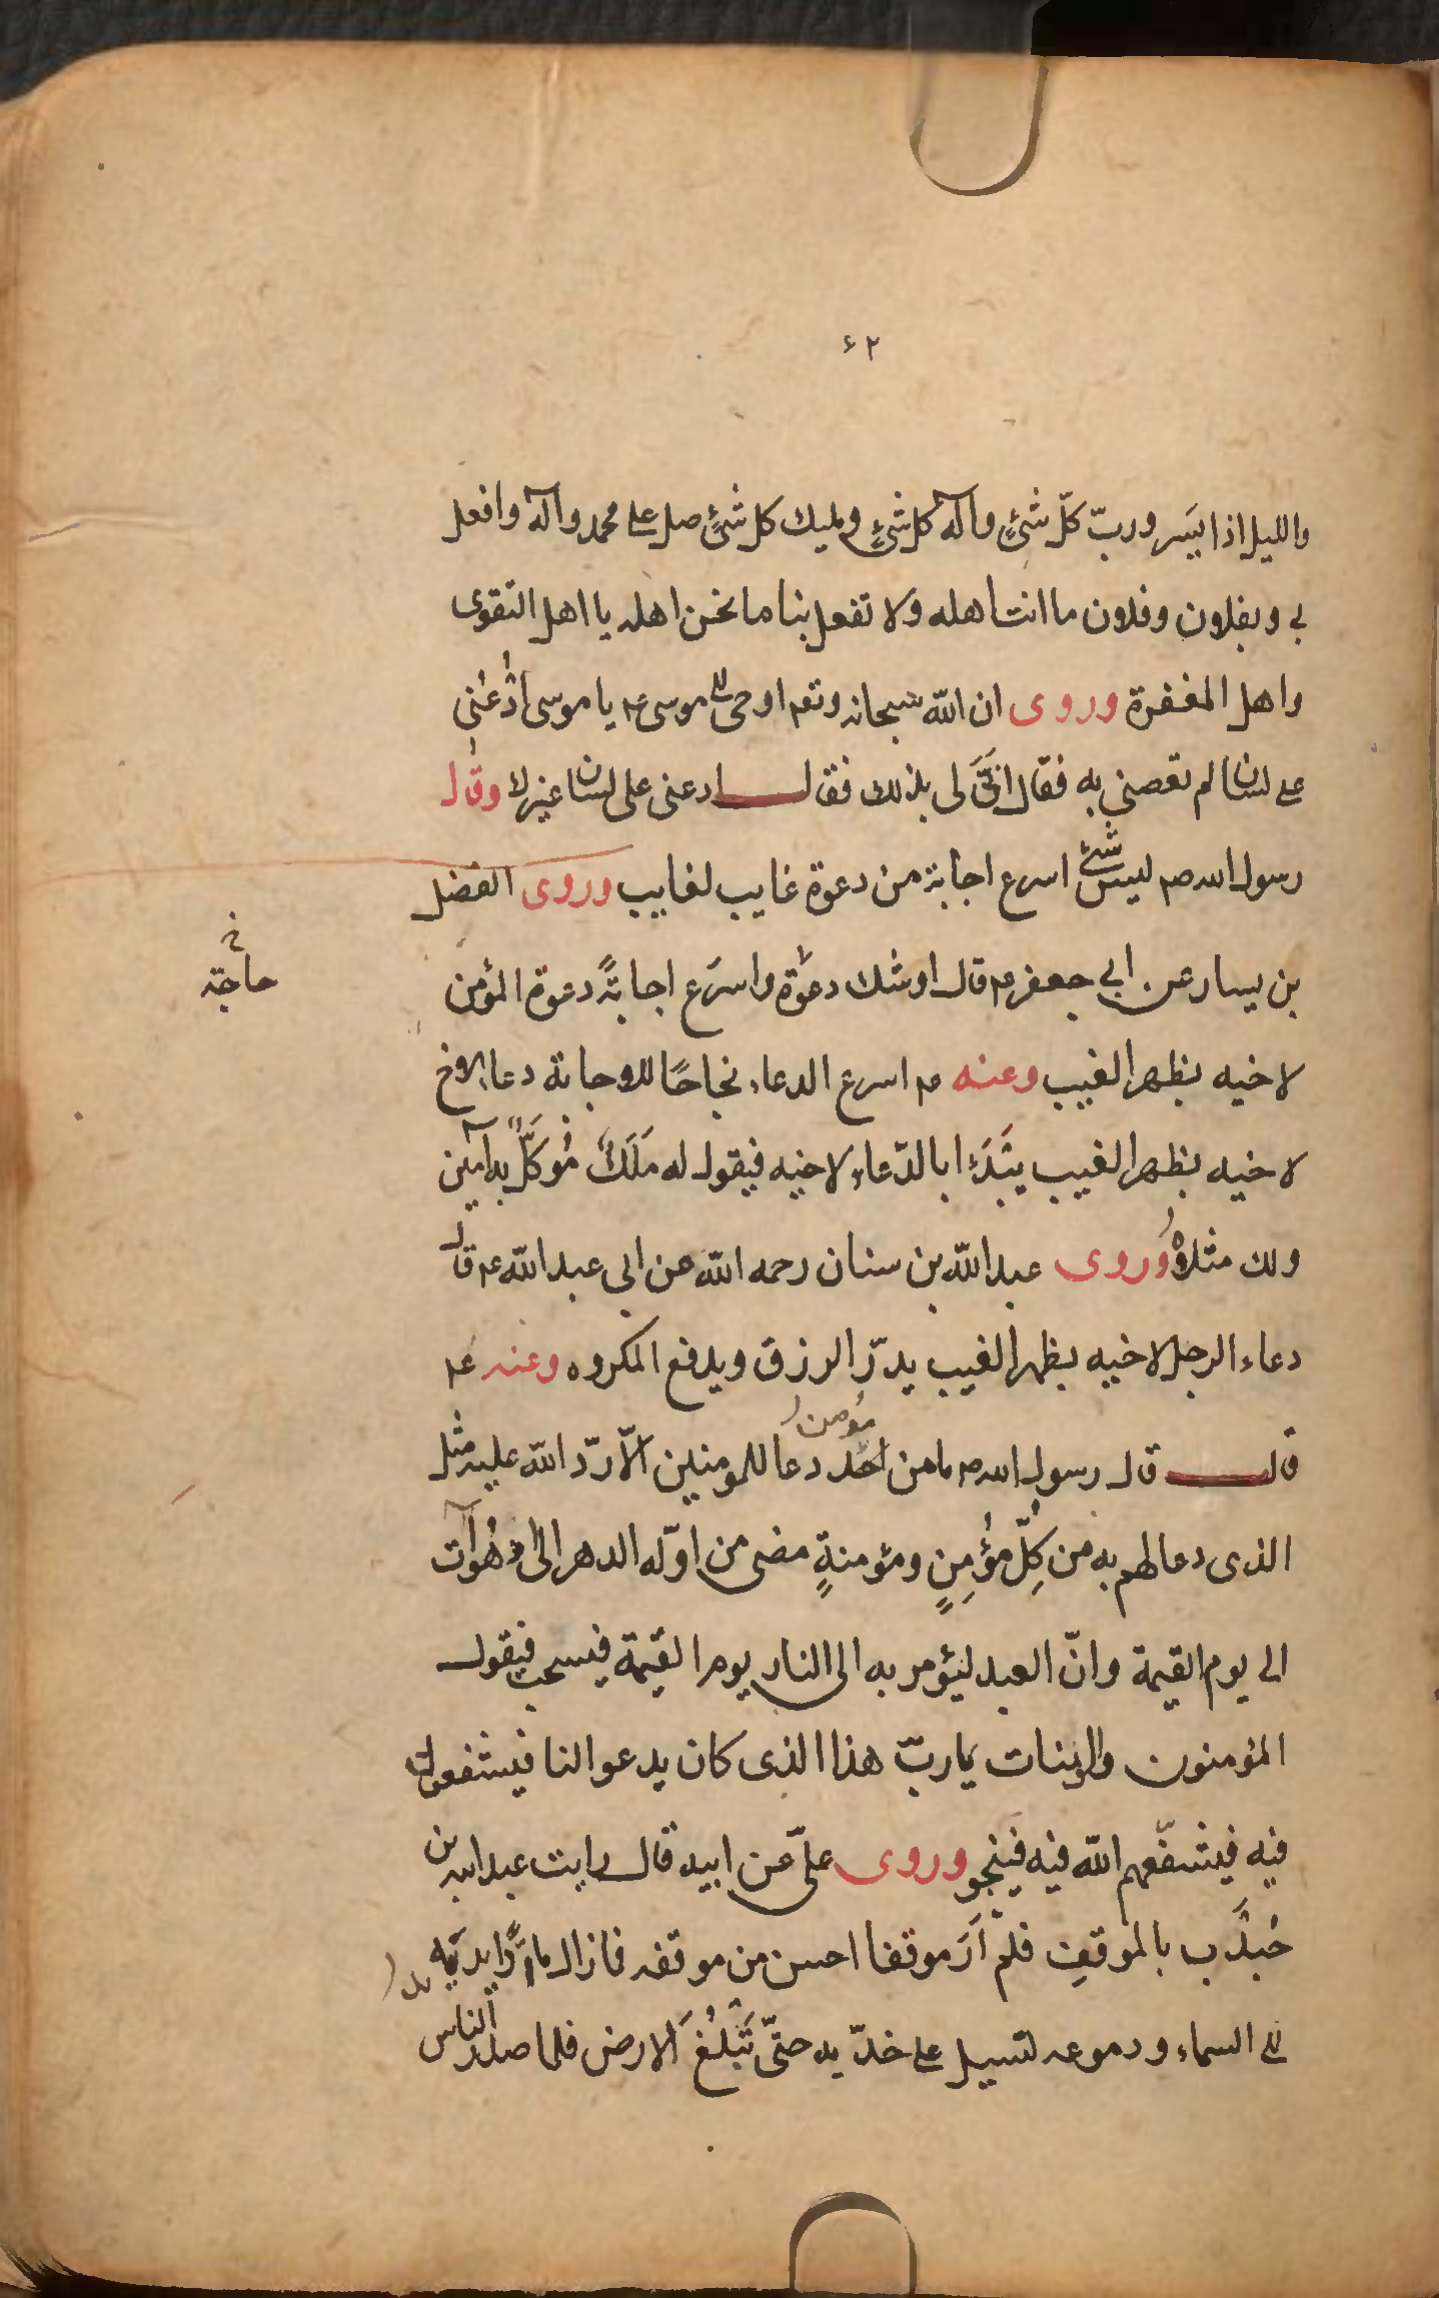 ۶۲
والليل اذا يسر ورب كلّ شئٍ وآله كل شئٍ ومليك كل شئٍ صل على محمد وآله وافعل
بى وبفلان وفلان ما انت اهله ولا تفعل بنا ما نحن اهله يا اهل التقوى
واهل المغفرة وروى ان الله سبحانه وتعم اوحى الى موسى عم يا موسى اُدْعُنى
على لسان لم تعصنى به فقال اَنّى لى بذلك فقال ادعنى على لسان غيرك وقال
رسول الله صم ليس شئ اسرع اجابة من دعوة غايب لغايب وروى الفضل
بن يسار عن ابى جعفر عم قال اوشك دعوة واسرع اجابةً دعوة المؤمن
حاجته خ
لاخيه بظهر الغيب وعنه عم اسرع الدعاء نجاحًا للاجابة دعاء الاخ
لاخيه بظهر الغيب يَبْدَءُ بالدّعاء لاخيه فيقول له مَلَكٌ مُوَكَّلٌ به آمين
ولك مثلاه وروى عبد الله بن سنان رحمه الله عن ابى عبد الله عم قال
دعاء الرجل لاخيه بظهر الغيب يدرّ الرزق ويدفع المكروه وعنه عم
قال قال رسول الله صم ما من احد مؤمن دعا للمومنين الّا ردّ الله عليه مثل
الذى دعا لهم به من كلّ مؤمِنٍ ومؤمنةٍ مضى من اوّل الدهر الى ما هُوَ آت
الى يوم القيمة وانّ العبد ليؤمر به الى النار يوم القيمة فيسحب فيقول
المؤمنون والمؤمنات يا ربّ هذا الذى كان يدعوا لنا فيشفعون
فيه فيشفّعهم الله فيه فينجو وروى علىّ عن ابيه قال رايت عبد الله بن
جُنْدَب بالموقف فلم اَرَ موقفا احسن من موقفه فما زال مادًّا يديه
الى السماء ودموعه تسيل على خدّيه حتّى تَبْلُغَ الارض فلما صدر الناس